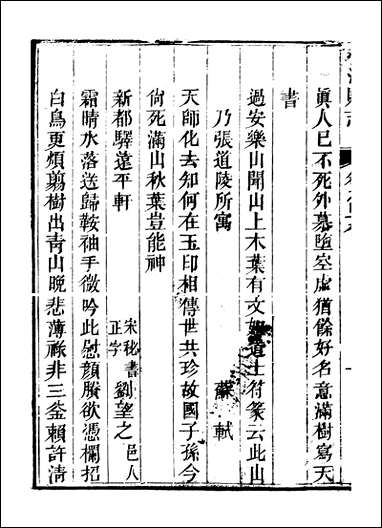 眞人已不死外慕墮空虛猶餘好名意滿樹寫天
書
過安樂山聞山上木葉有文如道士符篆云此山
乃張道陵所寓
蘇軾
天師化去知何在玉印相傳世共珍故國子孫今
尙死滿山秋葉豈能神
新都驛遠平軒
宋秘書正字劉望之邑人
霜晴水落送歸鞍袖手微吟此慰顏賸欲憑欄招
白鳥更煩剪樹出靑山晚悲薄祿非三釜賴許淸